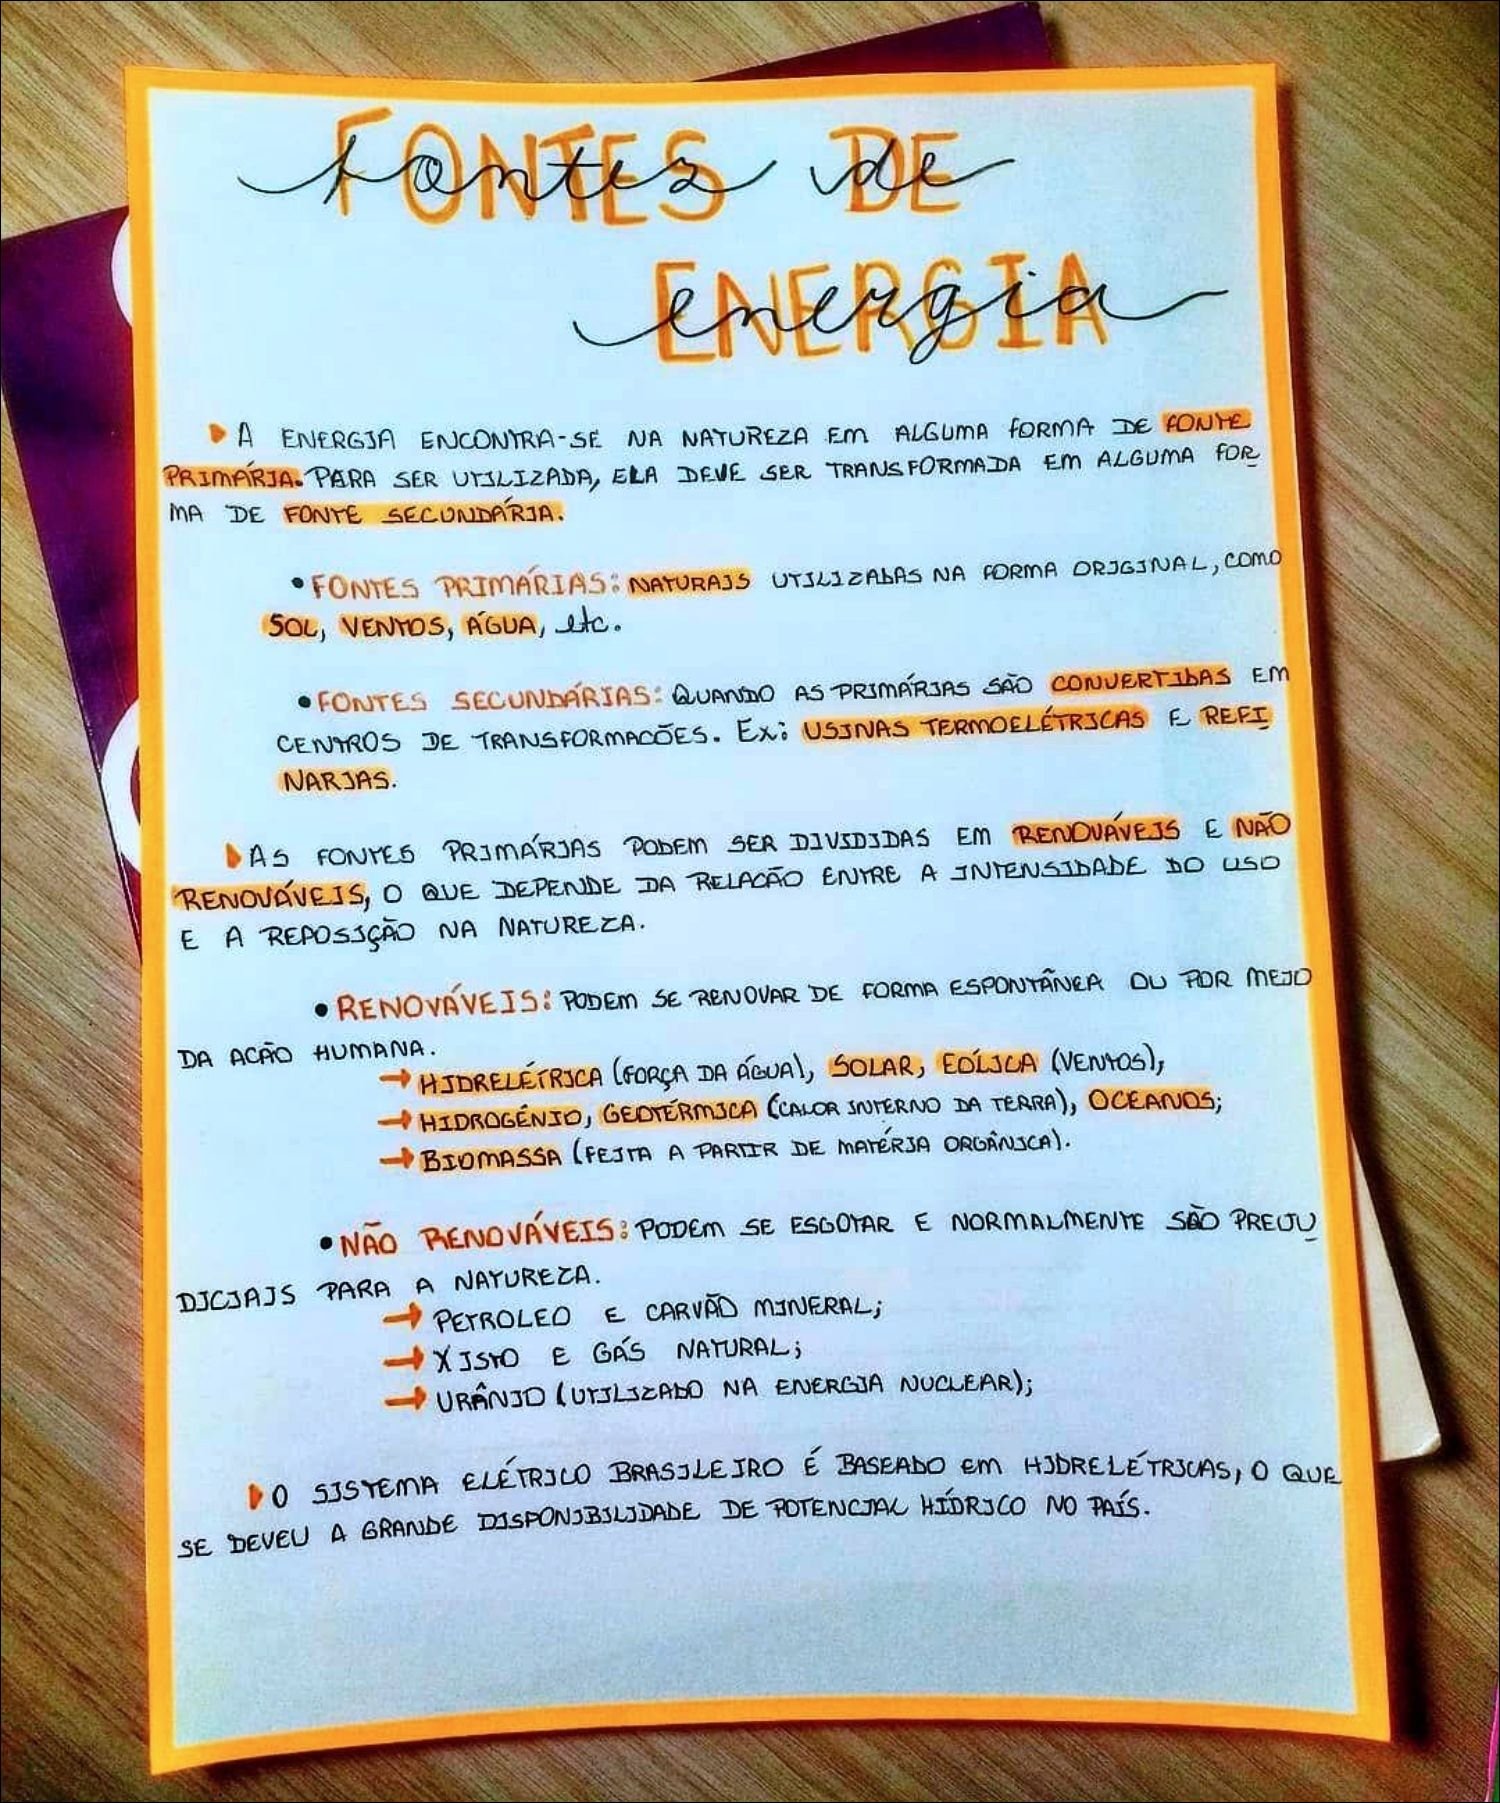 FONTES DE
fontes de
ENERGIA
energia
A ENERGIA ENCONTRA-SE NA NATUREZA EM ALGUMA FORMA DE FONTE
PRIMÁRIA. PARA SER UTILIZADA, ELA DEVE SER TRANSFORMADA EM ALGUMA FOR
MA DE FONTE SECUNDÁRIA.
• FONTES PRIMÁRIAS: NATURAIS UTILIZADAS NA FORMA ORIGINAL, COMO
SOL, VENTOS, ÁGUA, etc.
• FONTES SECUNDÁRIAS: QUANDO AS PRIMÁRIAS SÃO CONVERTIDAS EM
CENTROS DE TRANSFORMACÕES. Ex: USINAS TERMOELÉTRICAS E REFI
NARIAS.
AS FONTES PRIMÁRIAS PODEM SER DIVIDIDAS EM RENOVÁVEIS E NÃO
RENOVÁVEIS, O QUE DEPENDE DA RELACÃO ENTRE A INTENSIDADE DO USO
E A REPOSIÇÃO NA NATUREZA.
• RENOVÁVEIS: PODEM SE RENOVAR DE FORMA ESPONTÂNEA OU POR MEIO
DA ACÃO HUMANA.
→ HIDRELÉTRICA (FORÇA DA ÁGUA), SOLAR, EÓLICA (VENTOS),
→ HIDROGÉNIO, GEOTÉRMICA (CALOR INTERNO DA TERRA), OCEANOS;
→ BIOMASSA (FEITA A PARTIR DE MATÉRIA ORGÂNICA).
• NÃO RENOVÁVEIS: PODEM SE ESGOTAR E NORMALMENTE SÃO PREJU
DICIAIS PARA A NATUREZA.
→ PETROLEO E CARVÃO MINERAL;
→ XISTO E GÁS NATURAL;
→ URÂNIO (UTILIZADO NA ENERGIA NUCLEAR);
O SISTEMA ELÉTRICO BRASILEIRO É BASEADO EM HIDRELÉTRICAS, O QUE
SE DEVEU A GRANDE DISPONIBILIDADE DE POTENCIAL HÍDRICO NO PAÍS.